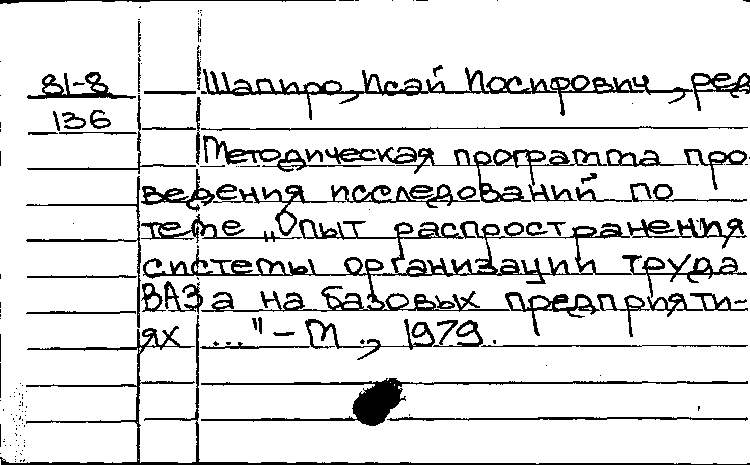 81-8
136
Шапиро, Исай Иосифович, ред
Методическая программа про-
ведения исследований по
теме „Опыт распространения
системы организации труда
ВАЗа на базовых предприяти-
ях ..." – М., 1979.